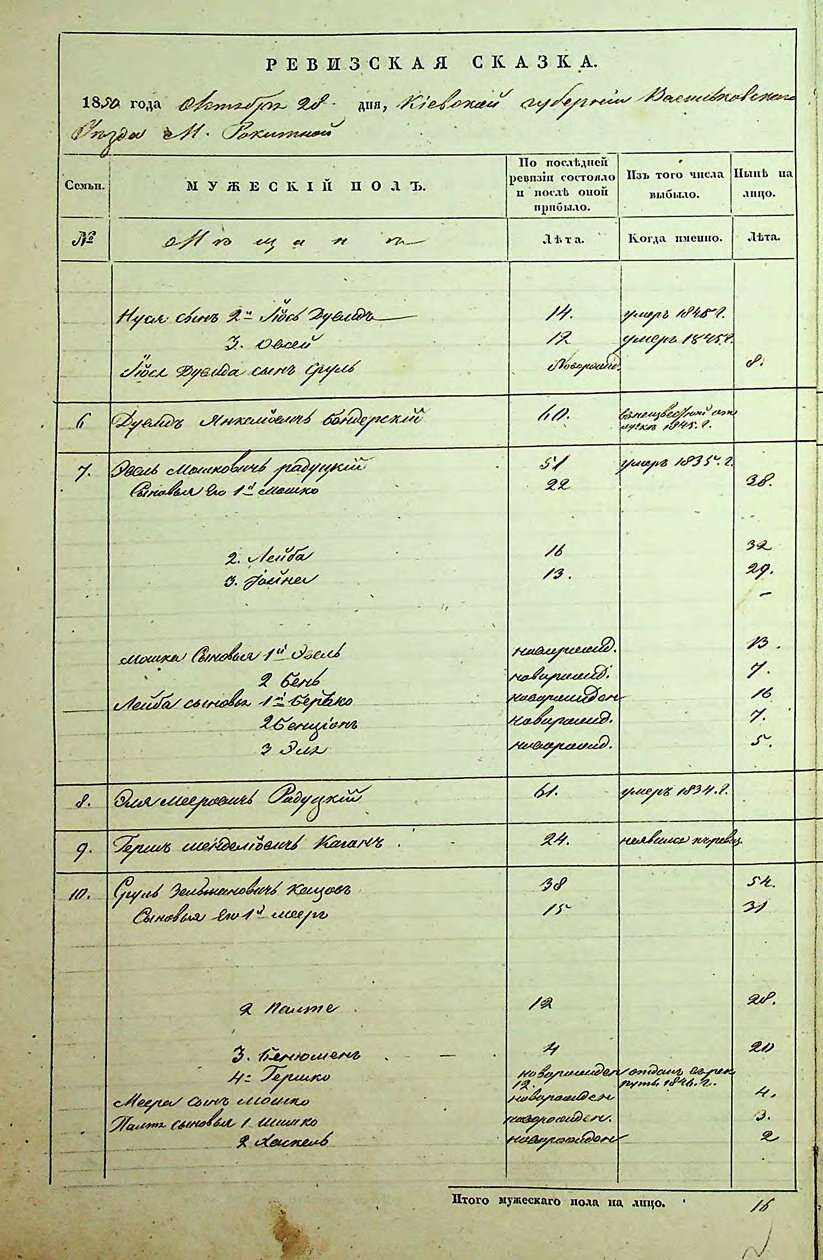 РЕВИЗСКАЯ СКАЗКА.
1850 года Октября 28 дня, Кіевской губерніи Васильковскаго
Уѣзда М. Рокитной
Семьи. МУЖЕСКІЙ ПОЛЪ. По послѣдней ревизіи состояло и послѣ оной прибыло. Изъ того числа выбыло. Нынѣ на лицо.
№ Мѣщане Лѣта. Когда именно. Лѣта.
сынъ 2й Іось Дувидъ 14. умеръ 1845 г.
3. Овсей 12 умеръ 1845 г.
Іося Дувида сынъ Сруль Новорожд. 8.
6 Дувидъ Янкелевичъ 60. 1845. г.
7. Эзель Мошковичъ Радуцкій 51 умеръ 1835. г.
Сыновья его 1й Мошко 22 38.
2. Лейба 16 32
3. 13. 29.
Мошка Сыновья 1й Эзель новорожд. 13.
2 Бень новорожд. 7.
Лейба сыновья 1й Берко новорожден 16
2 Бенціонъ новорожд. 7.
3 Эля новорожд. 5.
8. Эля Мееровичъ Радуцкій 61. умеръ 1834. г.
9. Гершъ Менделіовичъ Каганъ 24.
10. Сруль Зельмановичъ 38 54.
Сыновья его 1й Мееръ 15 31
2 Палте 12 28.
3. Бенюменъ 4 20
4. Гершко новорожден отданъ въ рек
12. руты 1846. г.
Меера сынъ Мошко новорожден 4.
Палте сыновья 1 новорожден. 3.
2 Хаскель новорожден 2
Итого мужескаго пола на лицо. 16